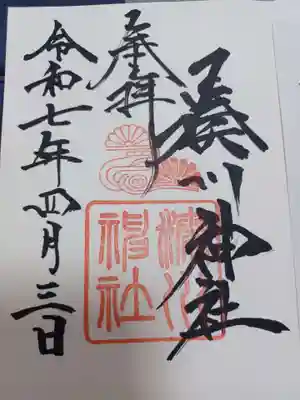 湊川神社
奉拝
湊川
神社
令和七年四月三日